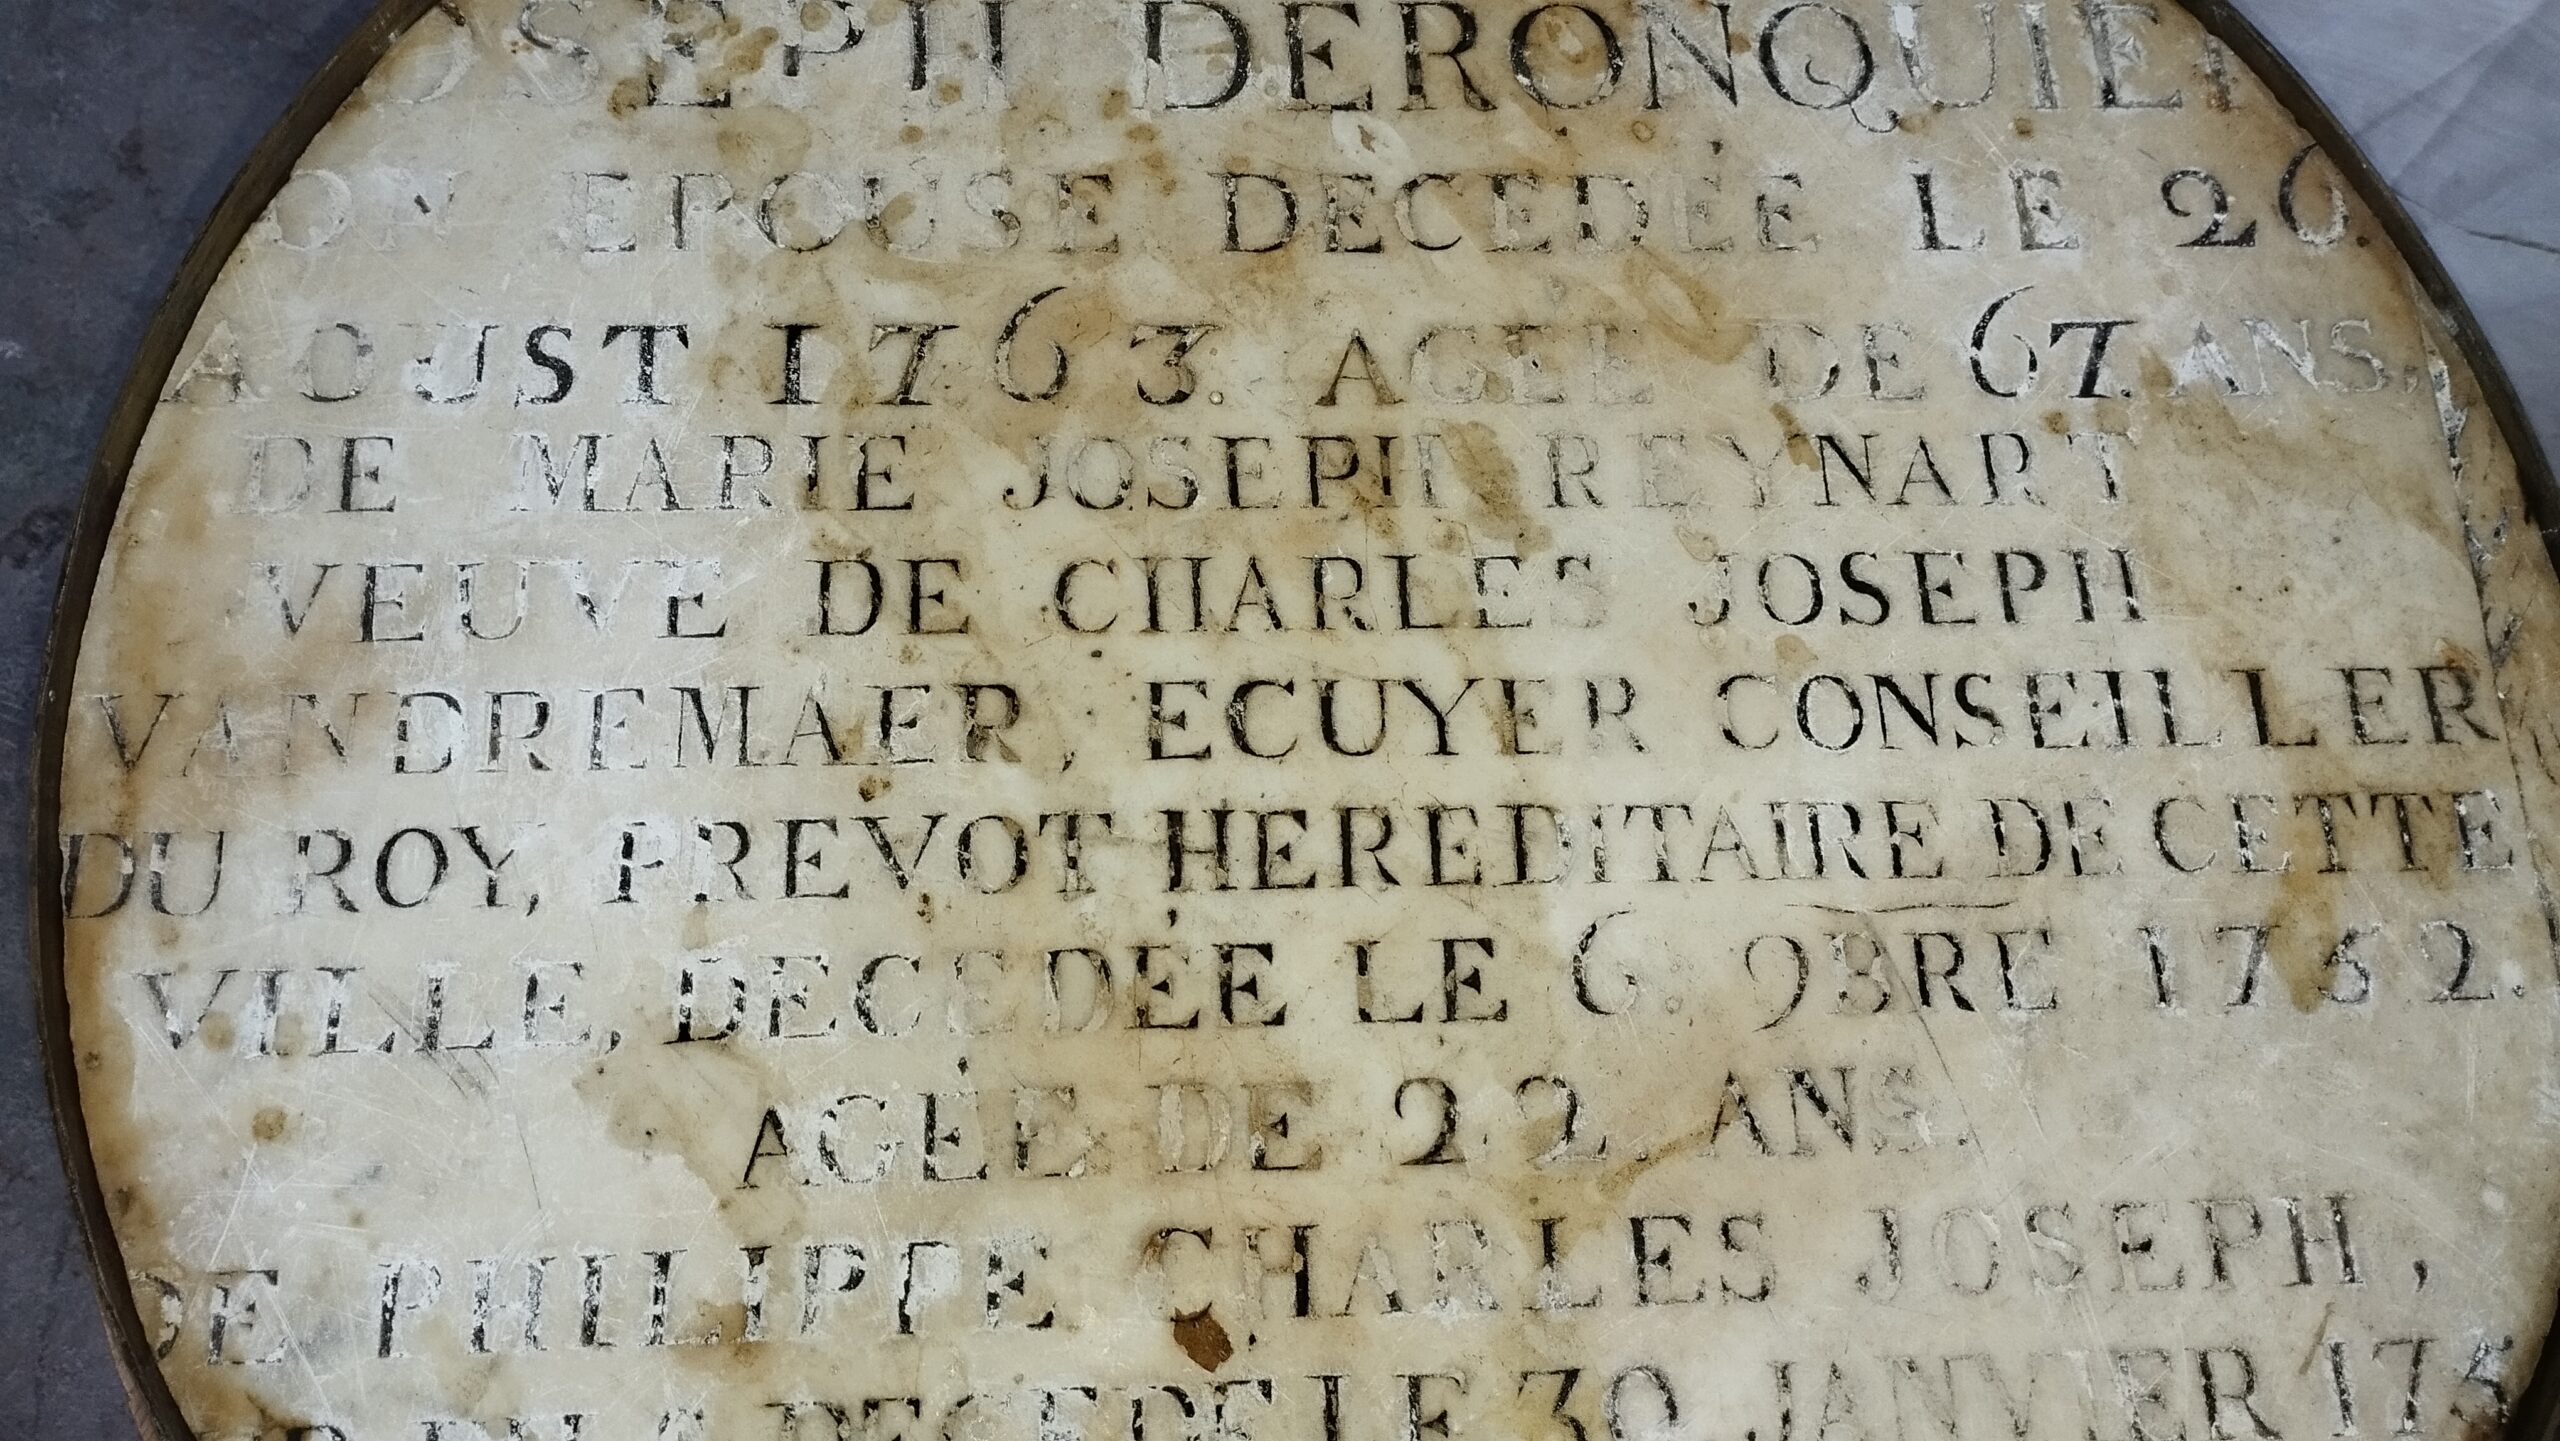 OSEPH DERONQUIER
ON EPOUSE DECEDÉE LE 20.
AOUST 1763. AGEE DE 67. ANS,
DE MARIE JOSEPH REYNART
VEUVE DE CHARLES JOSEPH
VANDREMAER, ECUYER CONSEILLER
DU ROY, PREVOT HEREDITAIRE DE CETTE
VILLE, DECEDÉE LE 6. 9BRE 1752.
AGÉE DE 22. ANS.
DE PHILIPPE CHARLES JOSEPH,
DECEDÉ LE 30 JANVIER 175